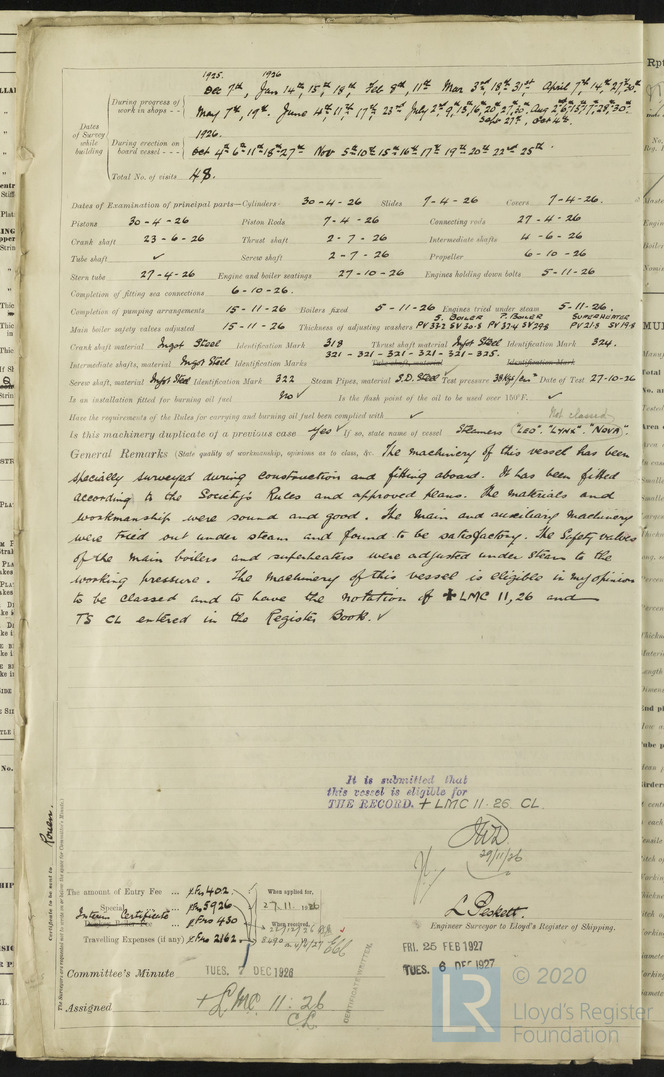 1925. 1926
Dec 7th, Jan 14th, 15th, 18th, Feb 8th, 11th Mar 3rd, 18th, 31st April 7th, 14th, 27th, 30th
During progress of work in shops - -
May 7th, 19th. June 4th, 11th, 17th 23rd July 2nd, 9th, 13th, 16th, 20th, 27th, 30th, Aug
Sept 27th Oct 4th.
Dates of Survey while building
1926.
During erection on board vessel - - -
Oct 4th 6th 11th 18th 27th Nov 5th 10th 15th 16th 17th 19th 20th 22nd 25th.
Total No. of visits 48.
Dates of Examination of principal parts—Cylinders 30-4-26 Slides 7-4-26 Covers 7-4-26.
Pistons 30-4-26 Piston Rods 7-4-26 Connecting rods 27-4-26
Crank shaft 23-6-26 Thrust shaft 2-7-26 Intermediate shafts 4-6-26
Tube shaft ✓ Screw shaft 2-7-26 Propeller 6-10-26
Stern tube 27-4-26 Engine and boiler seatings 27-10-26 Engines holding down bolts 5-11-26
Completion of fitting sea connections 6-10-26.
Completion of pumping arrangements 15-11-26 Boilers fixed 5-11-26 Engines tried under steam 5-11-26.
S. BOILER P. BOILER SUPERHEATER
Main boiler safety valves adjusted 15-11-26 Thickness of adjusting washers PV 37.2 SV 30.8 PV 37.4 SV 29.8 PV 21.8 SV 19.8
Crank shaft material Ingot Steel Identification Mark 318 Thrust shaft material Ingot Steel Identification Mark 324.
321 - 321 - 321 - 321 - 321 - 325.
Intermediate shafts, material Ingot Steel Identification Marks Tube shaft, material Identification Mark
Screw shaft, material Ingot Steel Identification Mark 322 Steam Pipes, material S.D. Steel Test pressure 38 Kgs/cm² Date of Test 27-10-26
Is an installation fitted for burning oil fuel No ✓ Is the flash point of the oil to be used over 150°F. ✓
Have the requirements of the Rules for carrying and burning oil fuel been complied with ✓ Not classed
Is this machinery duplicate of a previous case Yes ✓ If so, state name of vessel Steamers ("LEO". "LYNX." "NOVA").
General Remarks (State quality of workmanship, opinions as to class, &c. The machinery of this vessel has been
specially surveyed during construction and fitting aboard. It has been fitted
according to the Society's Rules and approved plans. The materials and
workmanship were sound and good. The main and auxiliary machinery
were tried out under steam and found to be satisfactory. The Safety valves
of the main boilers and superheaters were adjusted under steam to the
working pressure. The machinery of this vessel is eligible in my opinion
to be classed and to have the notation of + LMC 11,26 and
TS CL entered in the Register Book. ✓
It is submitted that
this vessel is eligible for
THE RECORD. + LMC 11·26 CL.
29/11/26
Rouen.
Certificate to be sent to
(The Surveyors are requested not to write on or below the space for Committee's Minute.)
The amount of Entry Fee ... Frs 402 When applied for,
Special ... Frs 5926 27.11.1926
Interim Certificate ... Frs 430 When received,
Travelling Expenses (if any) Frs 2162
L. Peskett.
Engineer Surveyor to Lloyd's Register of Shipping.
FRI. 25 FEB 1927
Committee's Minute TUES. 7 DEC 1926 TUES. 6 DEC 1927
CERTIFICATE WRITTEN.
Assigned + LMC 11:26
CL
© 2020
LR
Lloyd's Register
Foundation